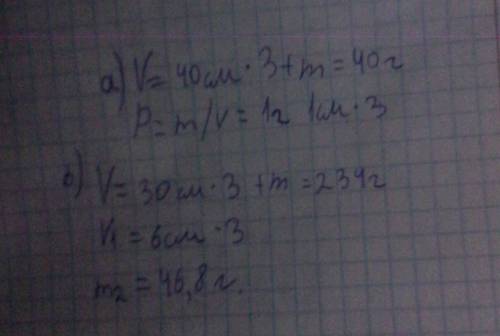 а) V = 40см·3 + m = 40г
P = m/V = 1г 1см·3
б) V = 30см·3 + m = 234г
V1 = 6см·3
m2 = 46,8г.